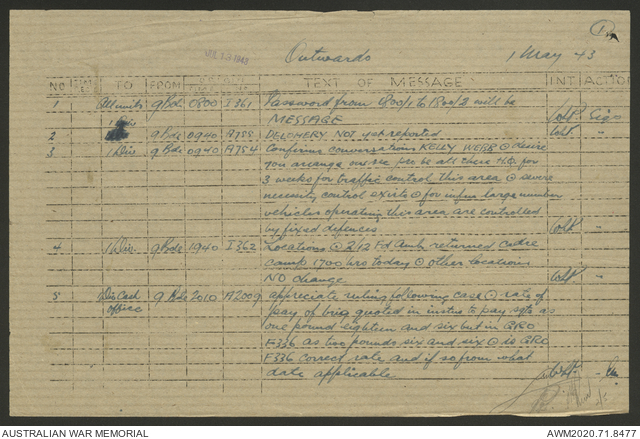 Outwards 1 May 43
NO TO FROM TEXT OF MESSAGE INT ACTION
1 All units 9 Bde 0800 I361 Password from 1800/1 to 1800/2 will be
MESSAGE Sigs
2 9 Bde 0940 A755 DELOHERY NOT yet reported
3 1 Div 9 Bde 0940 A754 Confirms conversations KELLY WEBB desire
you arrange one sec pro be att these H.Q. for
3 weeks for traffic control this area severe
necessity control exists for infm large number
vehicles operating this area are controlled
by fixed defences
4 1 Div 9 Bde 1940 I362 Locations 2/12 Fd Amb returned Cadre
camp 1700 hrs today other locations
NO change
5 Div Cash 9 Bde 2010 A2009 Appreciate ruling following case rate of
office pay of brig quoted in instns to pay sgts as
one pound eighteen and six but in GRO
F336 as two pounds six and six is GRO
F336 correct rate and if so from what
date applicable
AUSTRALIAN WAR MEMORIAL AWM2020.71.8477